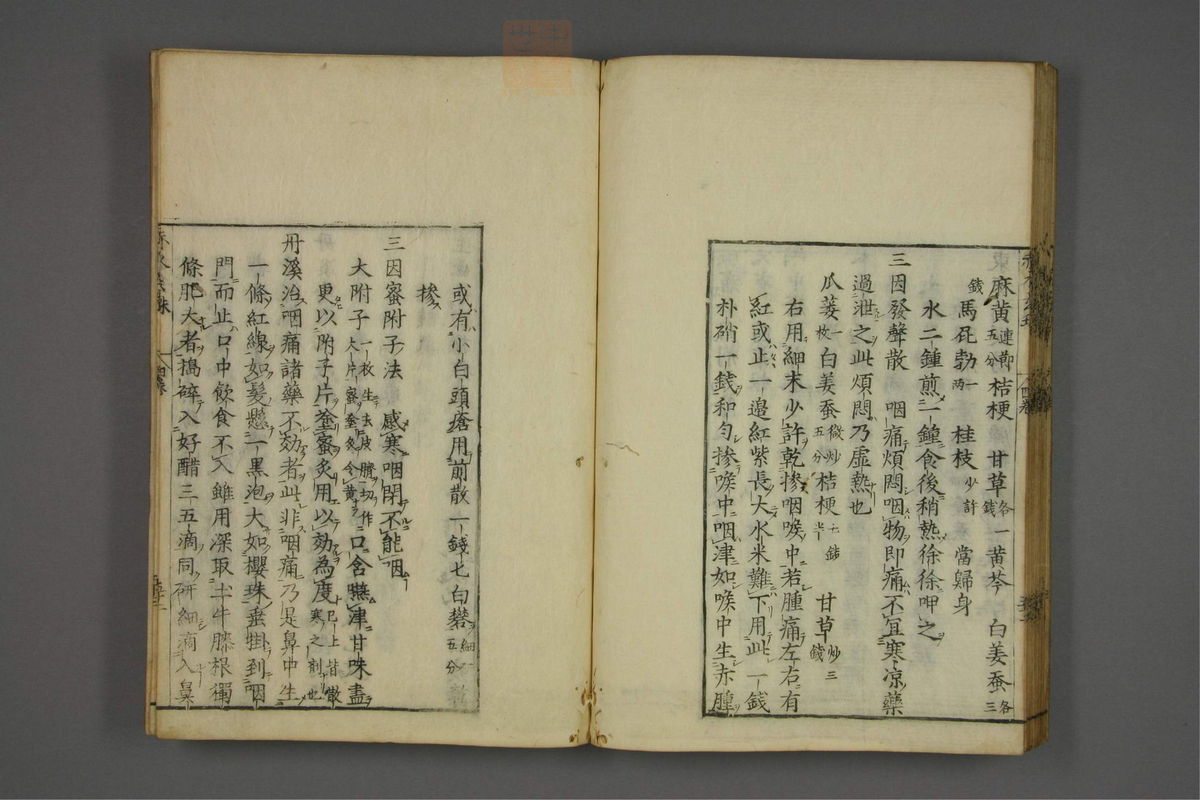 麻黄連節五分桔梗 甘草各一錢 黄芩 白姜蚕各三
錢 馬屁勃一兩 桂枝少許 當歸身
水二鍾煎一鍾食後稍熱徐徐呷之
三因發聲散 咽痛煩悶咽物即痛不宜寒凉藥
過泄之此煩悶乃虛熱也
瓜蔞一枚 白姜蚕微炒五分 桔梗七錢半 甘草炒三錢
右用細末少許乾掺咽喉中若腫痛左右有
紅或止一邊紅紫長大水米難下用此一錢
朴硝一錢和勻掺喉中咽津如喉中生赤腫
或有小白頭瘡用前散一錢匕白礬細研五分
掺
三因蜜附子法 感寒咽閉不能咽
大附子一枚生去皮臍切作大片蜜塗炙令黄 口含嚥津甘味盡
更以附子片塗蜜炙用以効為度已上皆散寒之剤也
丹溪治咽痛諸藥不効者此非咽痛乃是鼻中生
一條紅線如髮懸一黒泡大如櫻珠垂掛到咽
門而止口中飲食不入雖用深取土牛膝根獨
條肥大者搗碎入好醋三五滴同研細滴入鼻